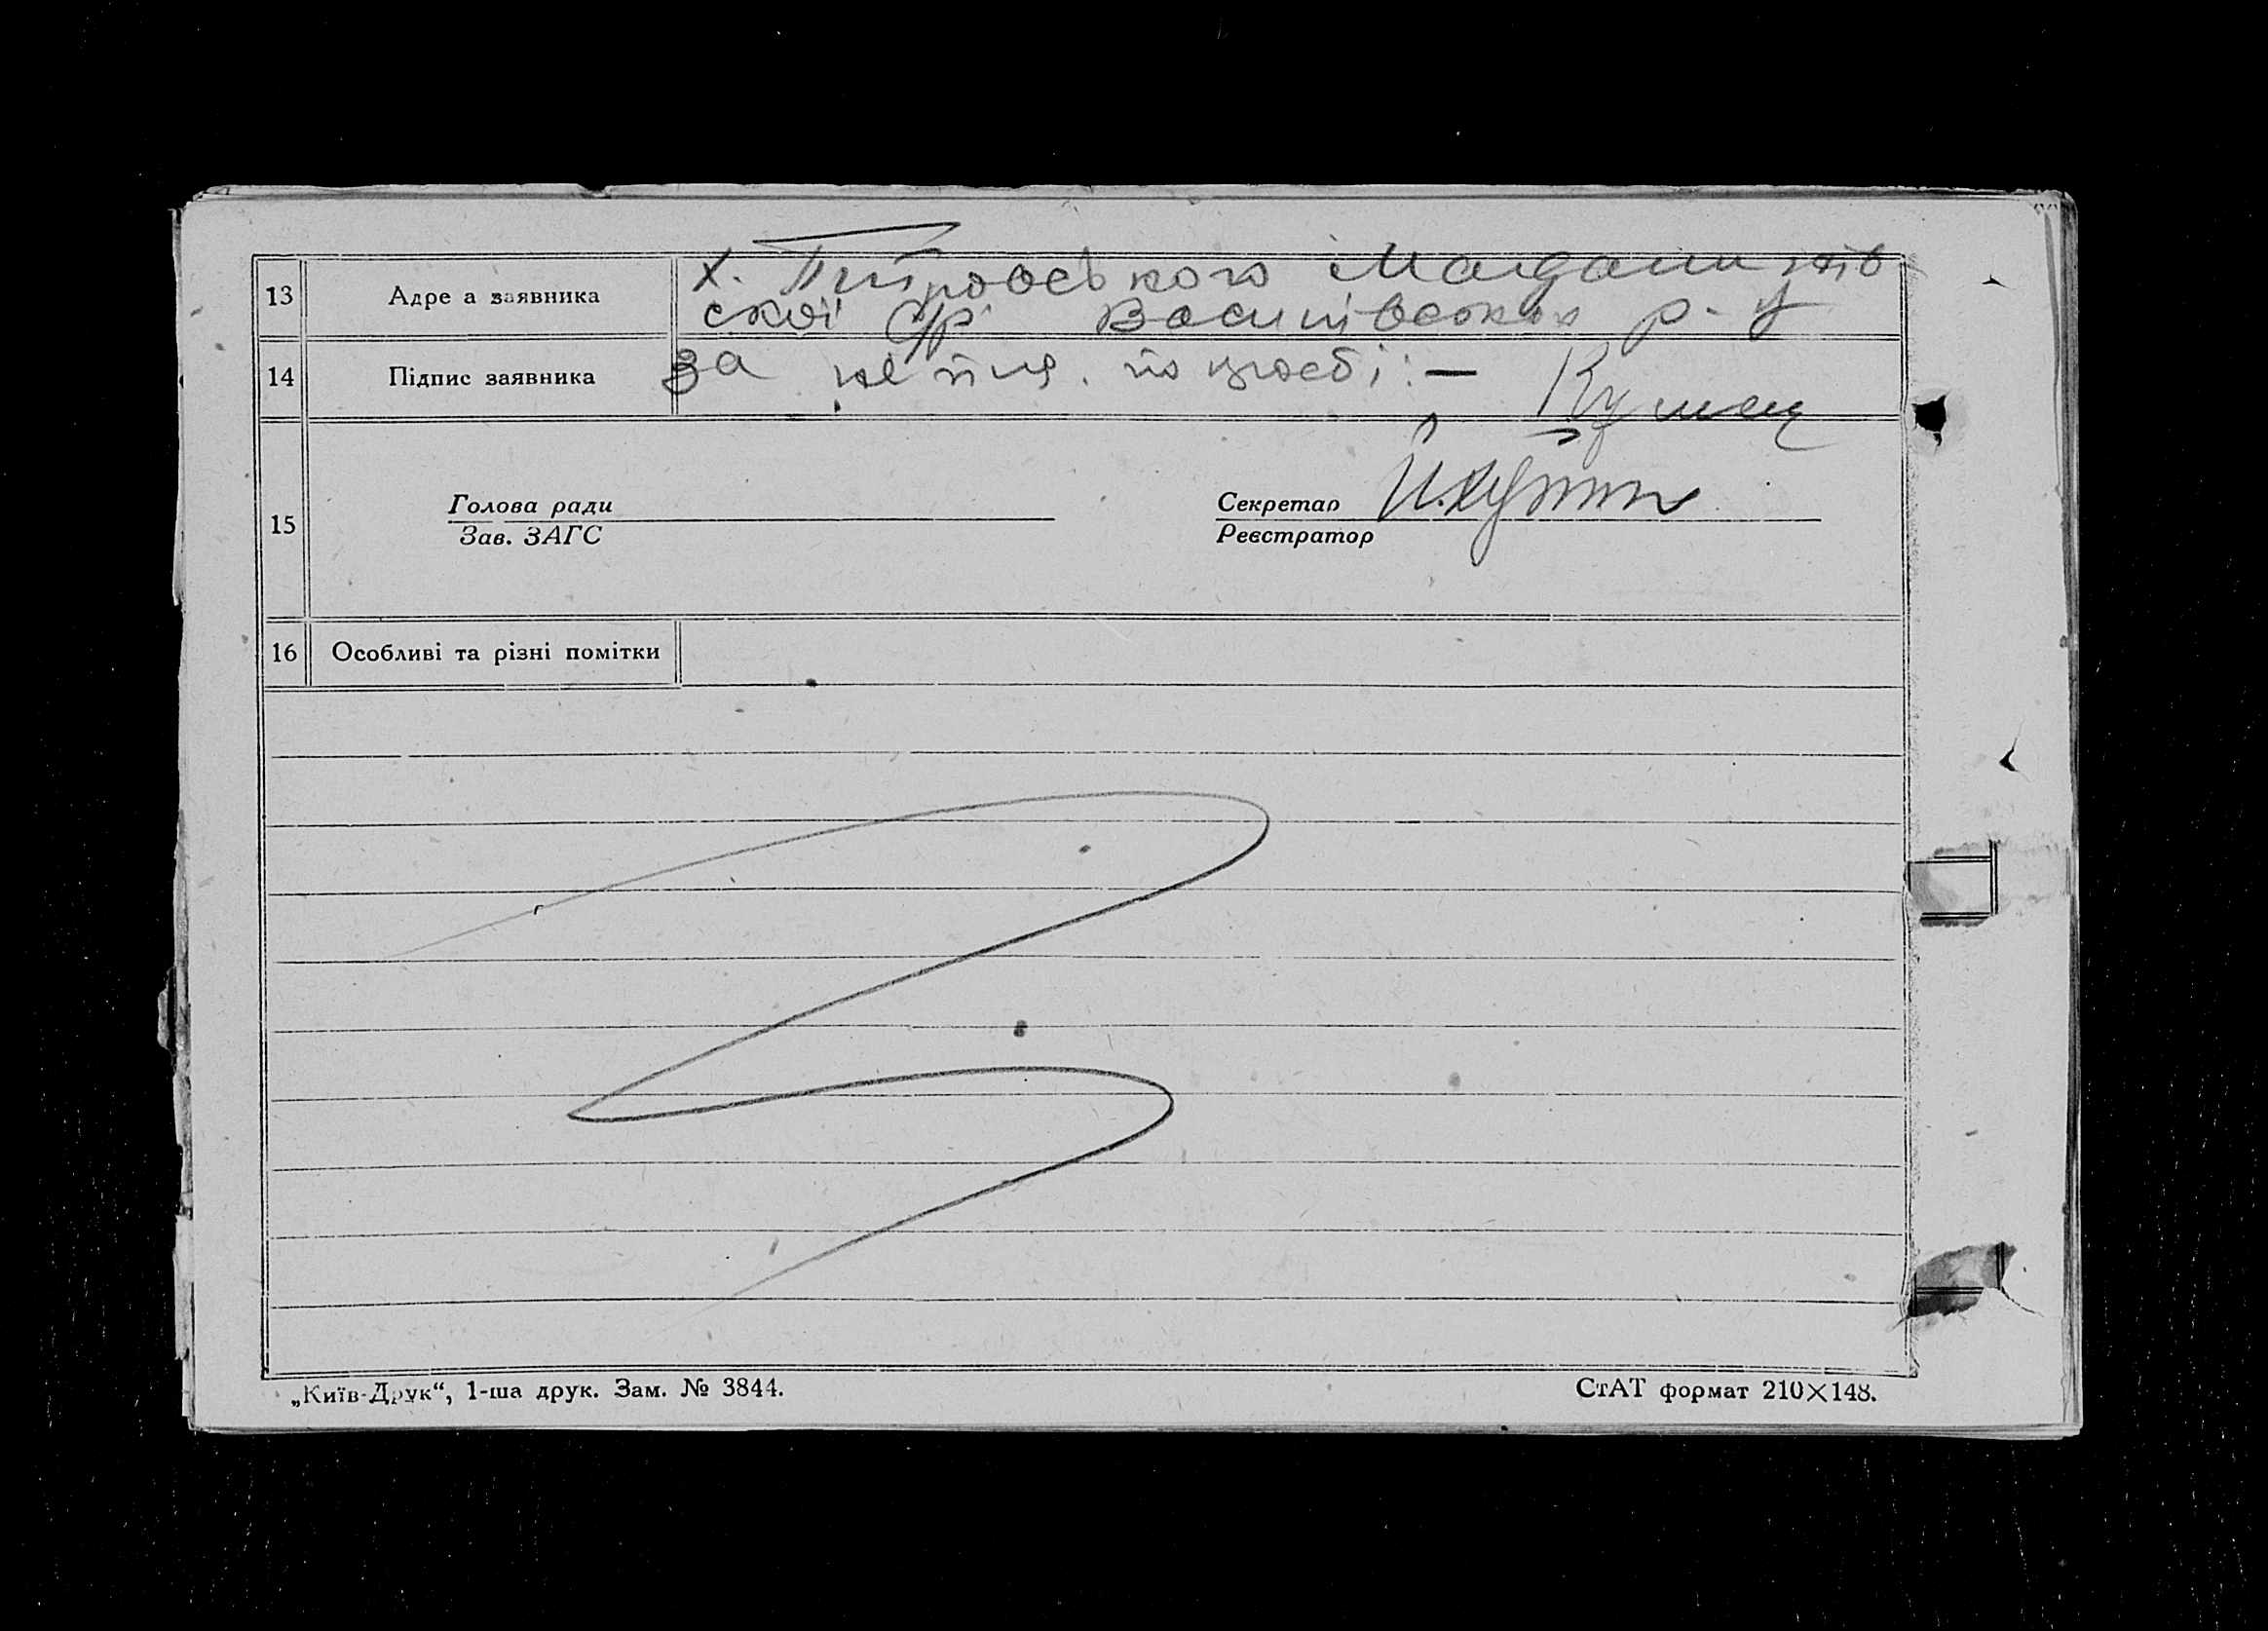 13 Адре а заявника х. Петровського
ської с/р. р-у
14 Підпис заявника за непис. по прозбі: —
Голова ради Секретар
15
Зав. ЗАГС Реєстратор
16 Особливі та різні помітки
„Київ-Друк“, 1-ша друк. Зам. № 3844. СтАТ формат 210×148.